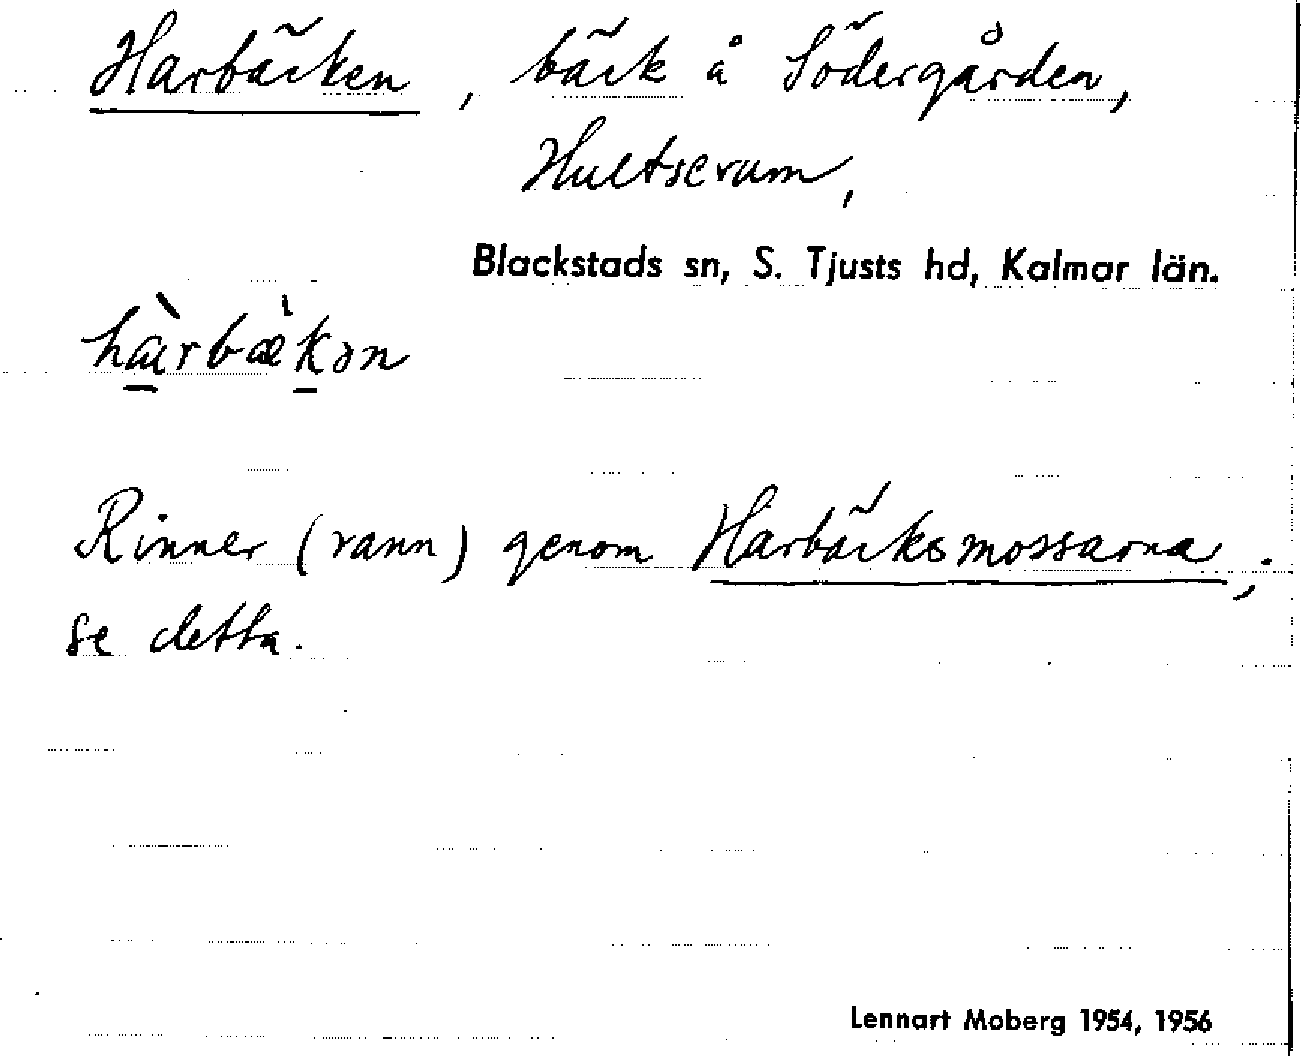 Harbäcken, bäck å Södergården,
Hultserum,
Blackstads sn, S. Tjusts hd, Kalmar län.
Rinner (rann) genom Harbäcksmossarna;
se detta.
Lennart Moberg 1954, 1956